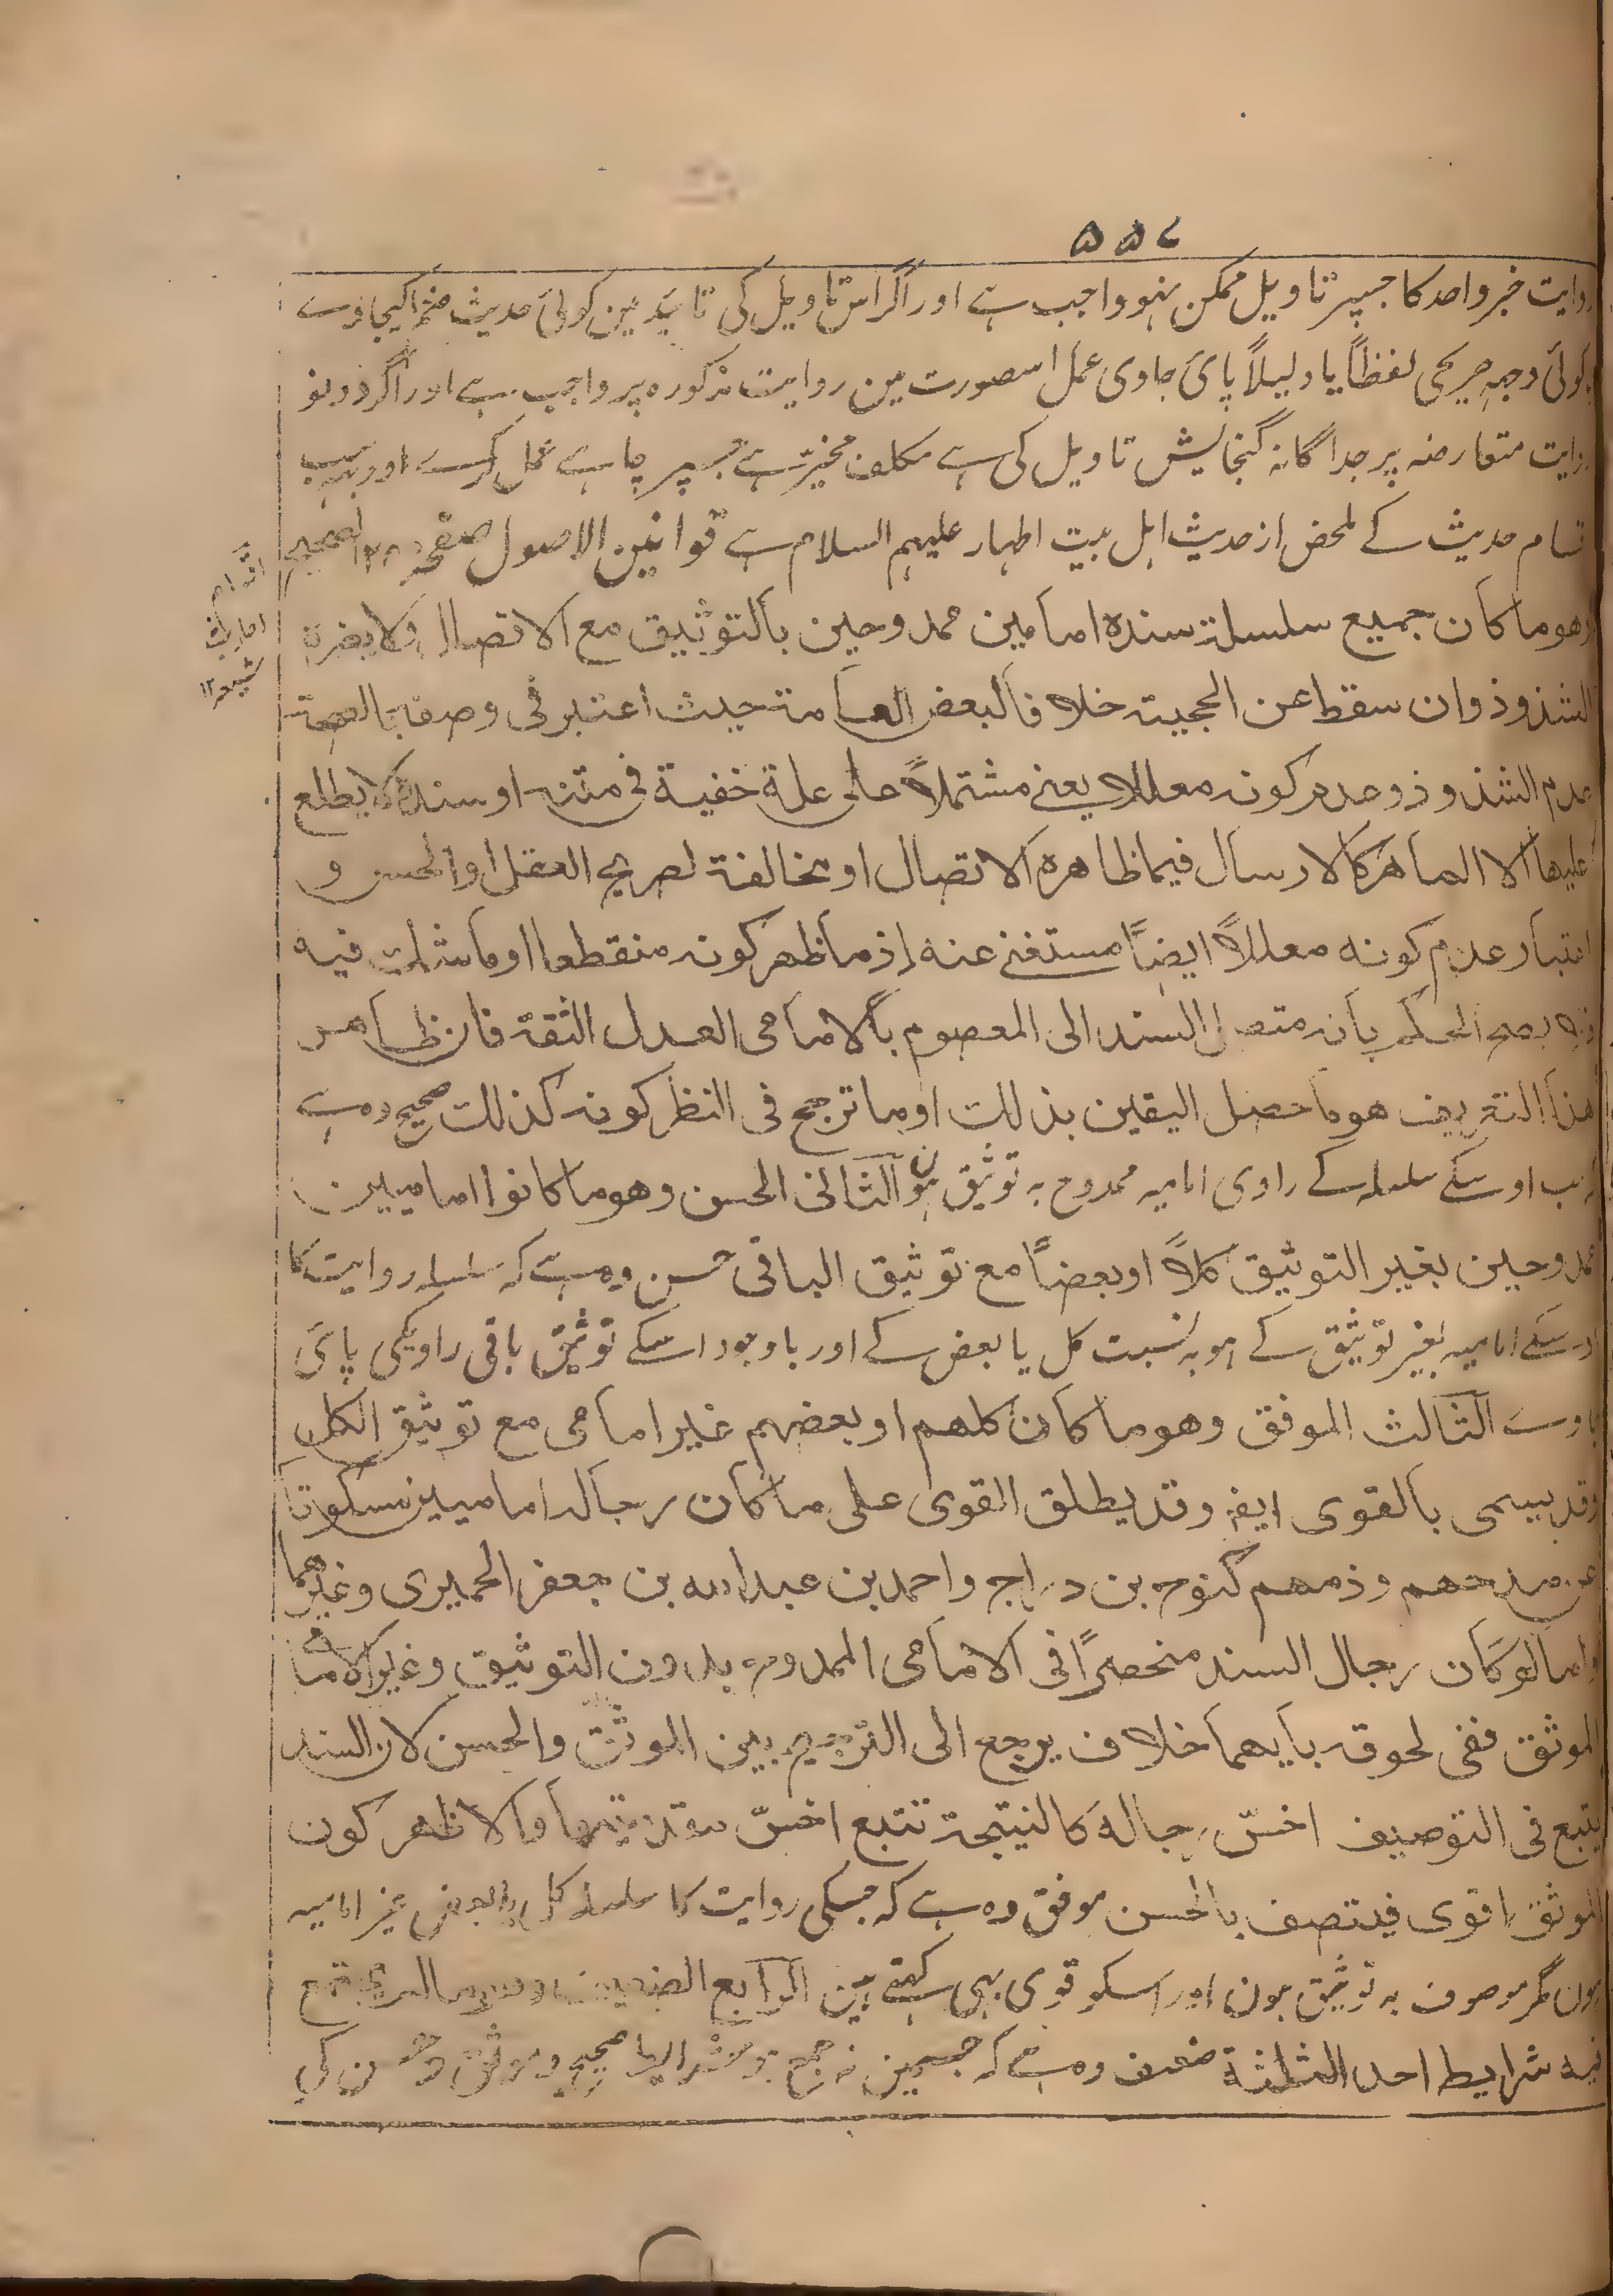 ۵۵۷
روایت خبر واحد کا جسپر تاویل ممکن نہو واجب ہے اور اگر اس تاویل کی تائید مین کوئی حدیث ضم کیجاوے
کوئی وجہ صریحی لفظاً یا دلیلاً پائ جاوی عمل اسصورت مین روایت مذکورہ پر واجب ہے اور اگر دونو
روایت متعارضہ پر جداگانہ گنجایش تاویل کی ہے مکلف مخیّر ہے جسپر چاہے عمل کرے اور یہہ سب
تسام حدیث کے لمحض از حدیث اہل بیت اطہار علیہم السلام ہے قوانین الاصول صفحہ الصحیح
اقسام
احادیث
شیعہ ۱۲
وهو ما كان جميع سلسلة سنده امامين ممدوحين بالتوثيق مع الاتصال ولا يضره
الشذوذ وان سقط عن الحجية خلافا لبعض العامة حيث اعتبر فى وصفه بالصحة
عدم الشذوذ وعدم كونه معللا يعنے مشتملاً على علة خفية فى متنه او سنده لا يطلع
عليها الا الماهر كالارسال فيما ظاهره الاتصال او مخالفة لصريح العقل او الحس و
اعتبار عدم كونه معللاً ايضاً مستغنے عنه إذ ما ظهر كونه منقطعا او ما شك فيه
فلا يصح الحكم بانه متصل السند الى المعصوم بالامامى العدل الثقة فان ظاهر
هذا التعريف هو ما حصل اليقين بذلك او ما ترجح فى النظر كونه كذلك صحیح وہ ہے
کہ سب اوسکے سلسلہ کے راوی امامیہ ممدوح بہ توثیق ہون الثانى الحسن وهو ما كانوا اماميين
ممدوحين بغير التوثيق كلاً او بعضاً مع توثيق الباقى حسن وہ ہے کہ سلسلہ روایت کا
اوسکے امامیہ بغیر توثیق کے ہو بہ نسبت کل یا بعض کے اور باوجود اسکے توثیق باقی راویکی پائی
جاوے الثالث الموفق وهو ما كان كلهم او بعضهم غير امامى مع توثيق الكل
وقد يسمى بالقوى ايض وقد يطلق القوى على ما كان رجاله اماميين مسكوتا
عن مدحهم وذمهم كنوح بن دراج واحمد بن عبد الله بن جعفر الحميرى وغيرهما
واما لو كان رجال السند منحصراً فى الامامى الممدوح بدون التوثيق وغير الاما
الموثق ففى لحوقه بايهما خلاف يرجع الى الترجيح بين الموثق والحسن لان السند
يتبع فى التوصيف اخسّ رجاله كالنتيجة تتبع اخسّ مقدمتيها والاظهر كون
الموثق اقوى فيتصف بالحسن موفق وہ ہے کہ جسکی روایت کا سلسلہ کل یا بعض غیر امامیہ
ہون مگر موصوف بہ توثیق ہون اور اسکو قوی بہی کہتے ہین الرابع الضعيف وهو ما لم يجتمع
فيه شرايط احد الثلثة ضعیف وہ ہے کہ جسمین نہ جمع ہو شرایط صحیح و موثق و حسن کی